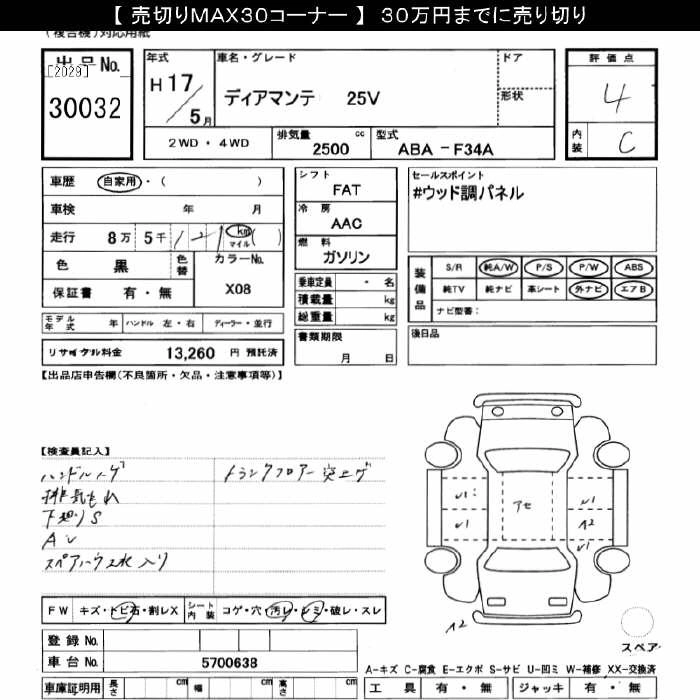 【 売切りMAX30コーナー 】 30万円までに売り切り
(複合機)対応用紙
出品No.
[2029]
30032
年式
H17/5月
車名・グレード
ディアマンテ 25V
ドア
形状
評価点
4
内装
C
2WD・4WD
排気量
2500 cc
型式
ABA - F34A
車歴 自家用・( )
車検 年 月
走行 8万 5千 121 km マイル ( )
色 黒
色替
カラーNo.
X08
保証書 有・無
モデル年式 年
ハンドル 左・右
ディーラー・並行
リサイクル料金 13,260 円 預託済
シフト
FAT
冷房
AAC
燃料
ガソリン
乗車定員 ・ 名
積載量 kg
総重量 kg
書類期限
月 日
セールスポイント
#ウッド調パネル
装備品
S/R 純A/W P/S P/W ABS
純TV 純ナビ 革シート 外ナビ エアB
ナビ型番:
後日品
【出品店申告欄(不良箇所・欠品・注意事項等)】
【検査員記入】
ハンドルハゲ
トランクフロアー突上ゲ
排気もれ
下廻りS
スペアハウス水入り
アセ
A2
A2
FW キズ・トビ石・割レX
シート内装 コゲ・穴・汚レ・シミ・破レ・スレ
登録No.
車台No. 5700638
車庫証明用 長さ cm 幅 cm 高さ cm
スペア
A-キズ C-腐食 E-エクボ S-サビ U-凹ミ W-補修 XX-交換済
工具 有・無 ジャッキ 有・無